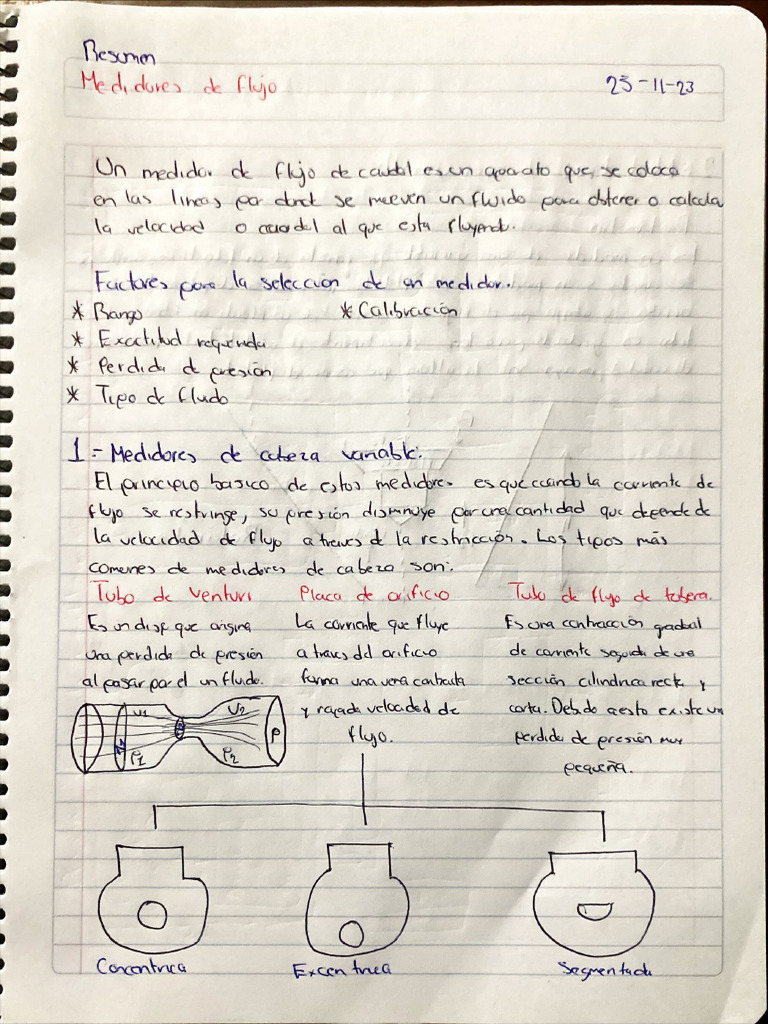 Resumen
Medidores de flujo 25-11-23
Un medidor de flujo de caudal es un aparato que se coloca
en las lineas por donde se mueven un fluido para obtener o calcula
la velocidad o caudal al que esta fluyendo.
Factores para la selección de un medidor.
* Rango * Calibración
* Exactitud requerida
* Perdida de presión
* Tipo de fludo
1= Medidores de cabeza variable:
El principio basico de estos medidores es que cuando la corriente de
flujo se restringe, su presión disminuye por una cantidad que depende de
la velocidad de flujo a traves de la restricción. Los tipos más
comunes de medidores de cabeza son:
Tubo de Venturi
Es un disp que origina
una perdida de presión
al pasar por el un fluido.
U1 U2
P1 P2 P
Placa de orificio
La corriente que fluye
a traves del orificio
forma una vena contracta
y rapida velocidad de
flujo.
Tubo de flujo de tobera.
Es una contracción gradual
de corriente seguida de una
sección cilindrica recta y
corta. Debido a esto existe un
perdida de presión muy
pequeña.
Concentrica Excentrica Segmentada